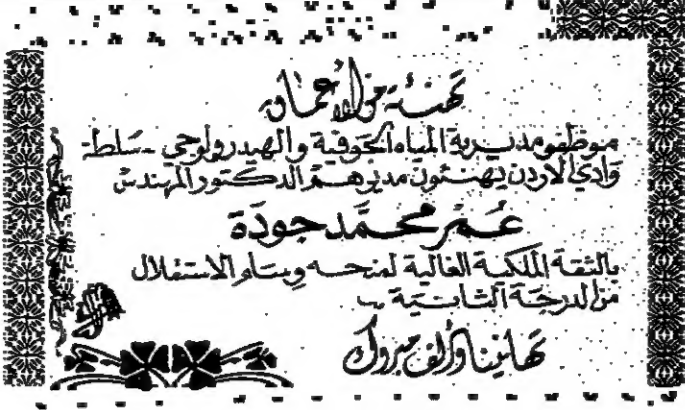 تهنئة من الأعماق
موظفو مديرية المياه الجوفية والهيدرولوجي - سلطة
وادي الاردن يهنئون مديرهم الدكتور المهندس
عمر محمد جودة
بالثقة الملكية الغالية لمنحه وسام الاستقلال
من الدرجة الثانية
تهانينا وألف مبروك